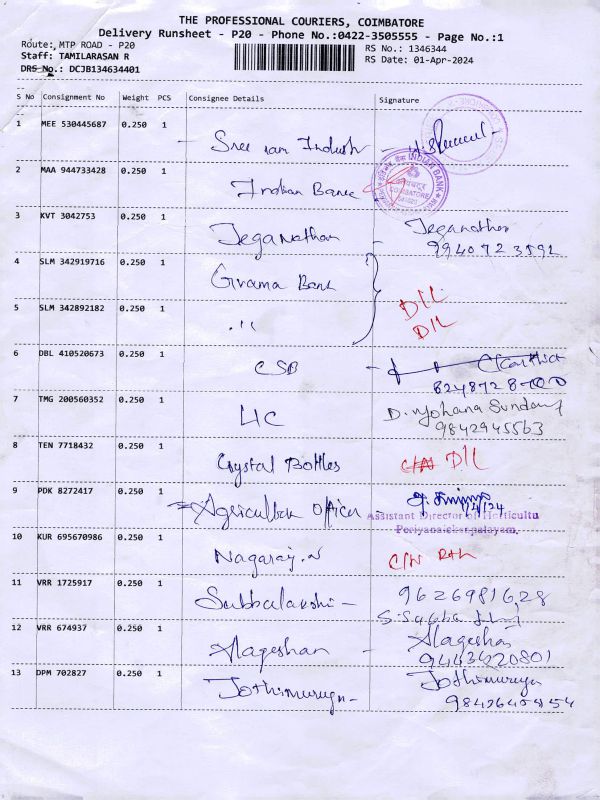 THE PROFESSIONAL COURIERS, COIMBATORE
Delivery Runsheet - P20 - Phone No.:0422-3505555 - Page No.:1
Route: MTP ROAD - P20
Staff: TAMILARASAN R
DRS No.: DCJB134634401
RS No.: 1346344
RS Date: 01-Apr-2024
S No Consignment No Weight PCS Consignee Details Signature
1 MEE 530445687 0.250 1
2 MAA 944733428 0.250 1 Indian Bank
INDIAN BANK
COIMBATORE
3 KVT 3042753 0.250 1 Jeganathan - Jeganathan
9940723591
4 SLM 342919716 0.250 1 Grama Bank
D/L
5 SLM 342892182 0.250 1 . 11
D/L
6 DBL 410520673 0.250 1 CSB - Karthick
7 TMG 200560352 0.250 1 LIC
9842945563
8 TEN 7718432 0.250 1 Crystal Bottles D/L
9 PDK 8272417 0.250 1 Agriculture Officer
Assistant Director of Horticultu
Periyanaickenpalayam.
10 KUR 695670986 0.250 1 Nagaraj.N
11 VRR 1725917 0.250 1 Subbalakshi - 9626981628
12 VRR 674937 0.250 1 Alageshan - Alageshan
9443220801
13 DPM 702827 0.250 1 Jothimurugn - Jothimurugn